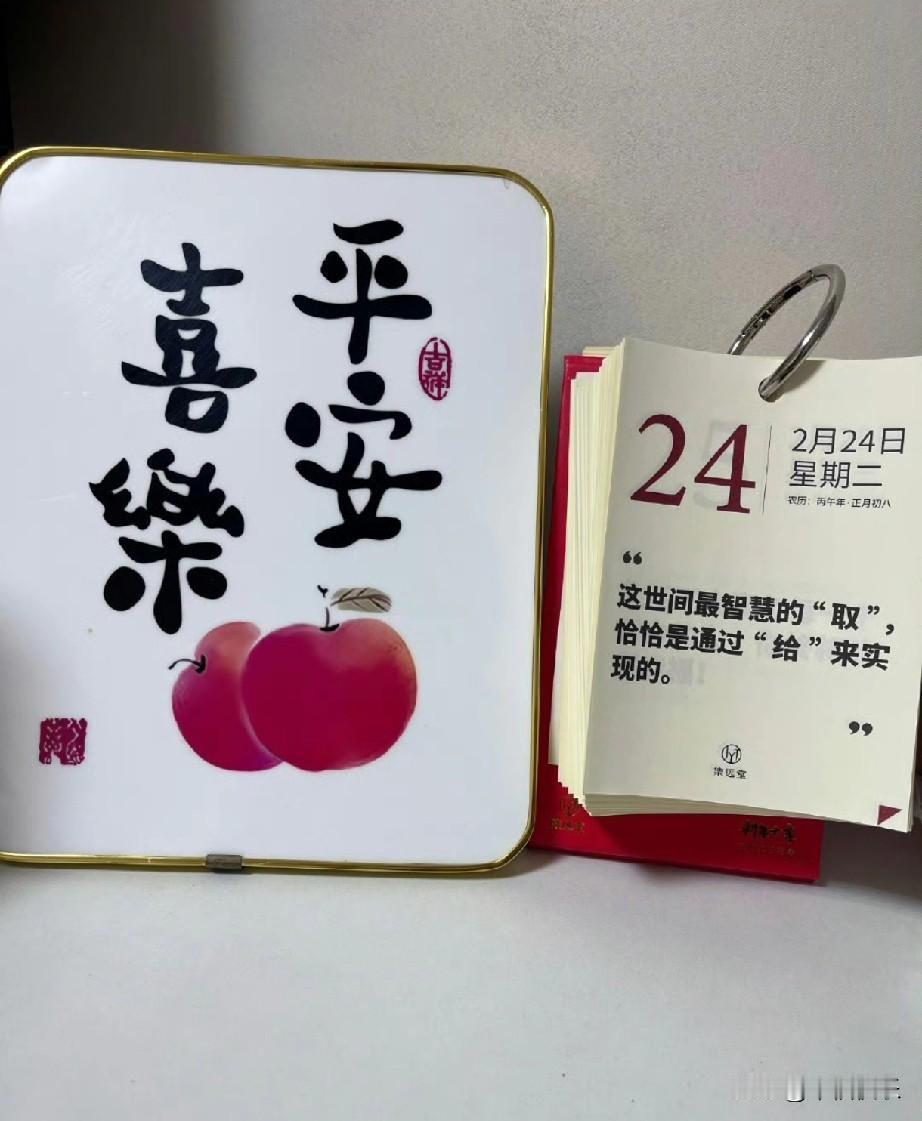 平安
喜樂
吉祥
24
2月24日
星期二
农历：丙午年·正月初八
“
这世间最智慧的“取”，
恰恰是通过“给”来实
现的。
”
集远堂